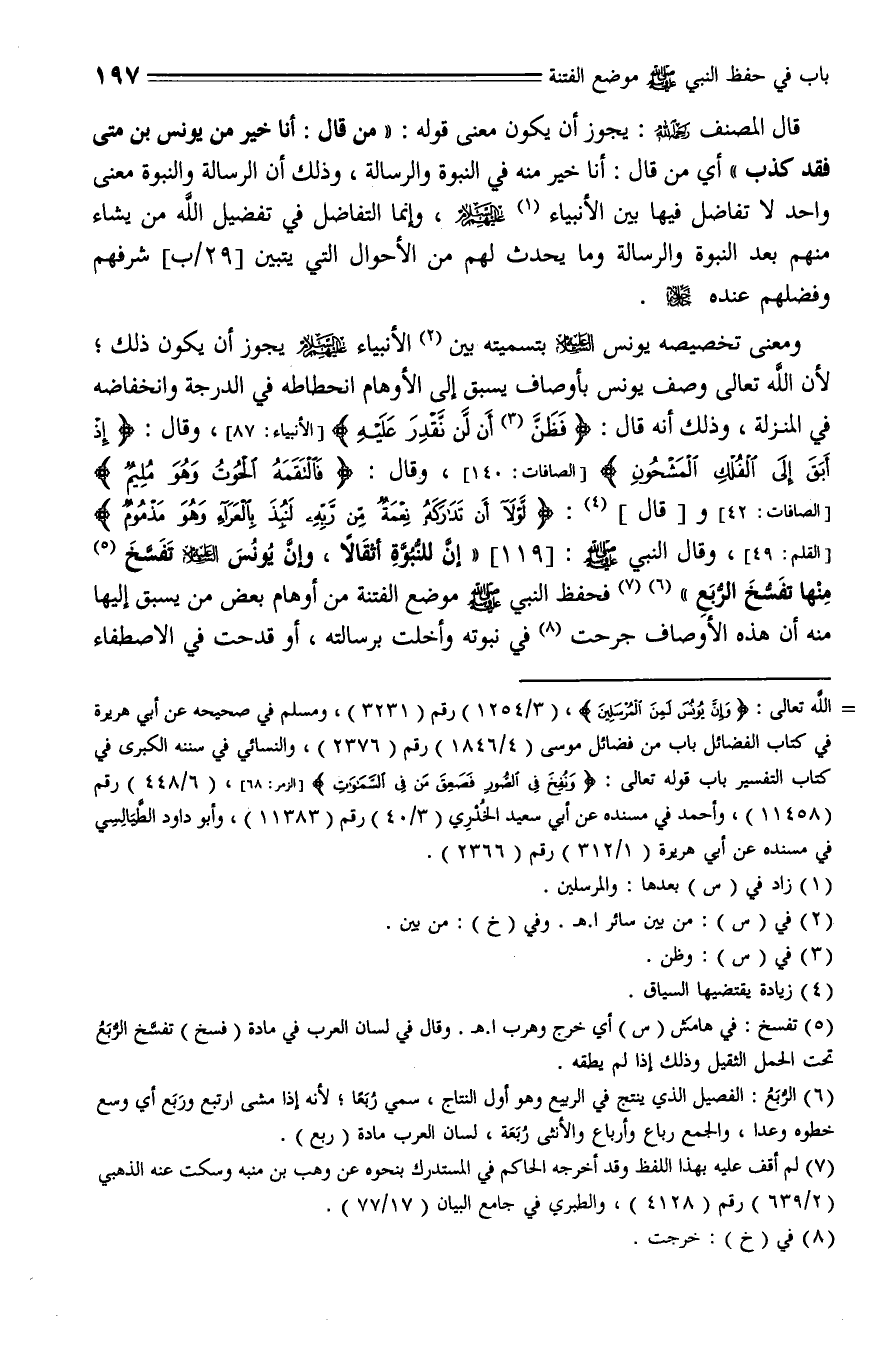 باب في حفظ النبي ﷺ موضع الفتنة ١٩٧
قال المصنف رحمه الله : يجوز أن يكون معنى قوله : « من قال : أنا خير من يونس بن متى
فقد كذب » أي من قال : أنا خير منه في النبوة والرسالة ، وذلك أن الرسالة والنبوة معنى
واحد لا تفاضل فيها بين الأنبياء (١) عليهم السلام ، وإنما التفاضل في تفضيل اللَّه من يشاء
منهم بعد النبوة والرسالة وما يحدث لهم من الأحوال التي يتبين [٢٩/ب] شرفهم
وفضلهم عنده ﷻ .
ومعنى تخصيصه يونس عليه السلام بتسميته بين (٢) الأنبياء عليهم السلام يجوز أن يكون ذلك ؛
لأن اللَّه تعالى وصف يونس بأوصاف يسبق إلى الأوهام انحطاطه في الدرجة وانخفاضه
في المنزلة ، وذلك أنه قال : ﴿ فَظَنَّ (٣) أَن لَّن نَّقْدِرَ عَلَيْهِ ﴾ [الأنبياء: ٨٧] ، وقال : ﴿ إِذْ
أَبَقَ إِلَى ٱلْفُلْكِ ٱلْمَشْحُونِ ﴾ [الصافات: ١٤٠] ، وقال : ﴿ فَٱلْتَقَمَهُ ٱلْحُوتُ وَهُوَ مُلِيمٌ ﴾
[الصافات: ٤٢] و [ قال ] (٤) : ﴿ لَّوْلَآ أَن تَدَارَكَهُ نِعْمَةٌ مِّن رَّبِّهِۦ لَنُبِذَ بِٱلْعَرَآءِ وَهُوَ مَذْمُومٌ ﴾
[القلم: ٤٩] ، وقال النبي ﷺ : [١١٩] « إنَّ للنُّبُوَّةِ أثقَالًا ، وإنَّ يُونُسَ عليه السلام تَفَسَّخَ (٥)
مِنْها تفَسُّخَ الرُّبَعِ » (٦) (٧) فحفظ النبي ﷺ موضع الفتنة من أوهام بعض من يسبق إليها
منه أن هذه الأوصاف جرحت (٨) في نبوته وأخلت برسالته ، أو قدحت في الاصطفاء
= اللَّه تعالى : ﴿ وَإِنَّ يُونُسَ لَمِنَ ٱلْمُرْسَلِينَ ﴾ ، ( ١٢٥٤/٣ ) رقم ( ٣٢٣١ ) ، ومسلم في صحيحه عن أبي هريرة
في كتاب الفضائل باب من فضائل موسى ( ١٨٤٦/٤ ) رقم ( ٢٣٧٦ ) ، والنسائي في سننه الكبرى في
كتاب التفسير باب قوله تعالى : ﴿ وَنُفِخَ فِى ٱلصُّورِ فَصَعِقَ مَن فِى ٱلسَّمَٰوَٰتِ ﴾ [الزمر: ٦٨] ، ( ٤٤٨/٦ ) رقم
( ١١٤٥٨ ) ، وأحمد في مسنده عن أبي سعيد الخُدْرِي ( ٤٠/٣ ) رقم ( ١١٣٨٣ ) ، وأبو داود الطَّيَالِسِي
في مسنده عن أبي هريرة ( ٣١٢/١ ) رقم ( ٢٣٦٦ ) .
(١) زاد في ( س ) بعدها : والمرسلين .
(٢) في ( س ) : من بين سائر ا.هـ . وفي ( خ ) : من بين .
(٣) في ( س ) : وظن .
(٤) زيادة يقتضيها السياق .
(٥) تفسخ : في هامش ( س ) أي خرج وهرب ا.هـ . وقال في لسان العرب في مادة ( فسخ ) تفسَّخ الرُّبَعُ
تحت الحمل الثقيل وذلك إذا لم يطقه .
(٦) الرُّبَعُ : الفصيل الذي ينتج في الربيع وهو أول النتاج ، سمي رُبَعًا ؛ لأنه إذا مشى ارتبع ورَبَع أي وسع
خطوه وعدا ، والجمع رباع وأرباع والأنثى رُبَعَة ، لسان العرب مادة ( ربع ) .
(٧) لم أقف عليه بهذا اللفظ وقد أخرجه الحاكم في المستدرك بنحوه عن وهب بن منبه وسكت عنه الذهبي
( ٦٣٩/٢ ) رقم ( ٤١٢٨ ) ، والطبري في جامع البيان ( ٧٧/١٧ ) .
(٨) في ( خ ) : خرجت .